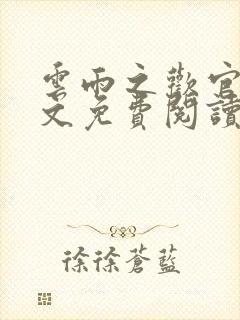 雲雨之歡官
文免費閱讀
徐徐蒼藍